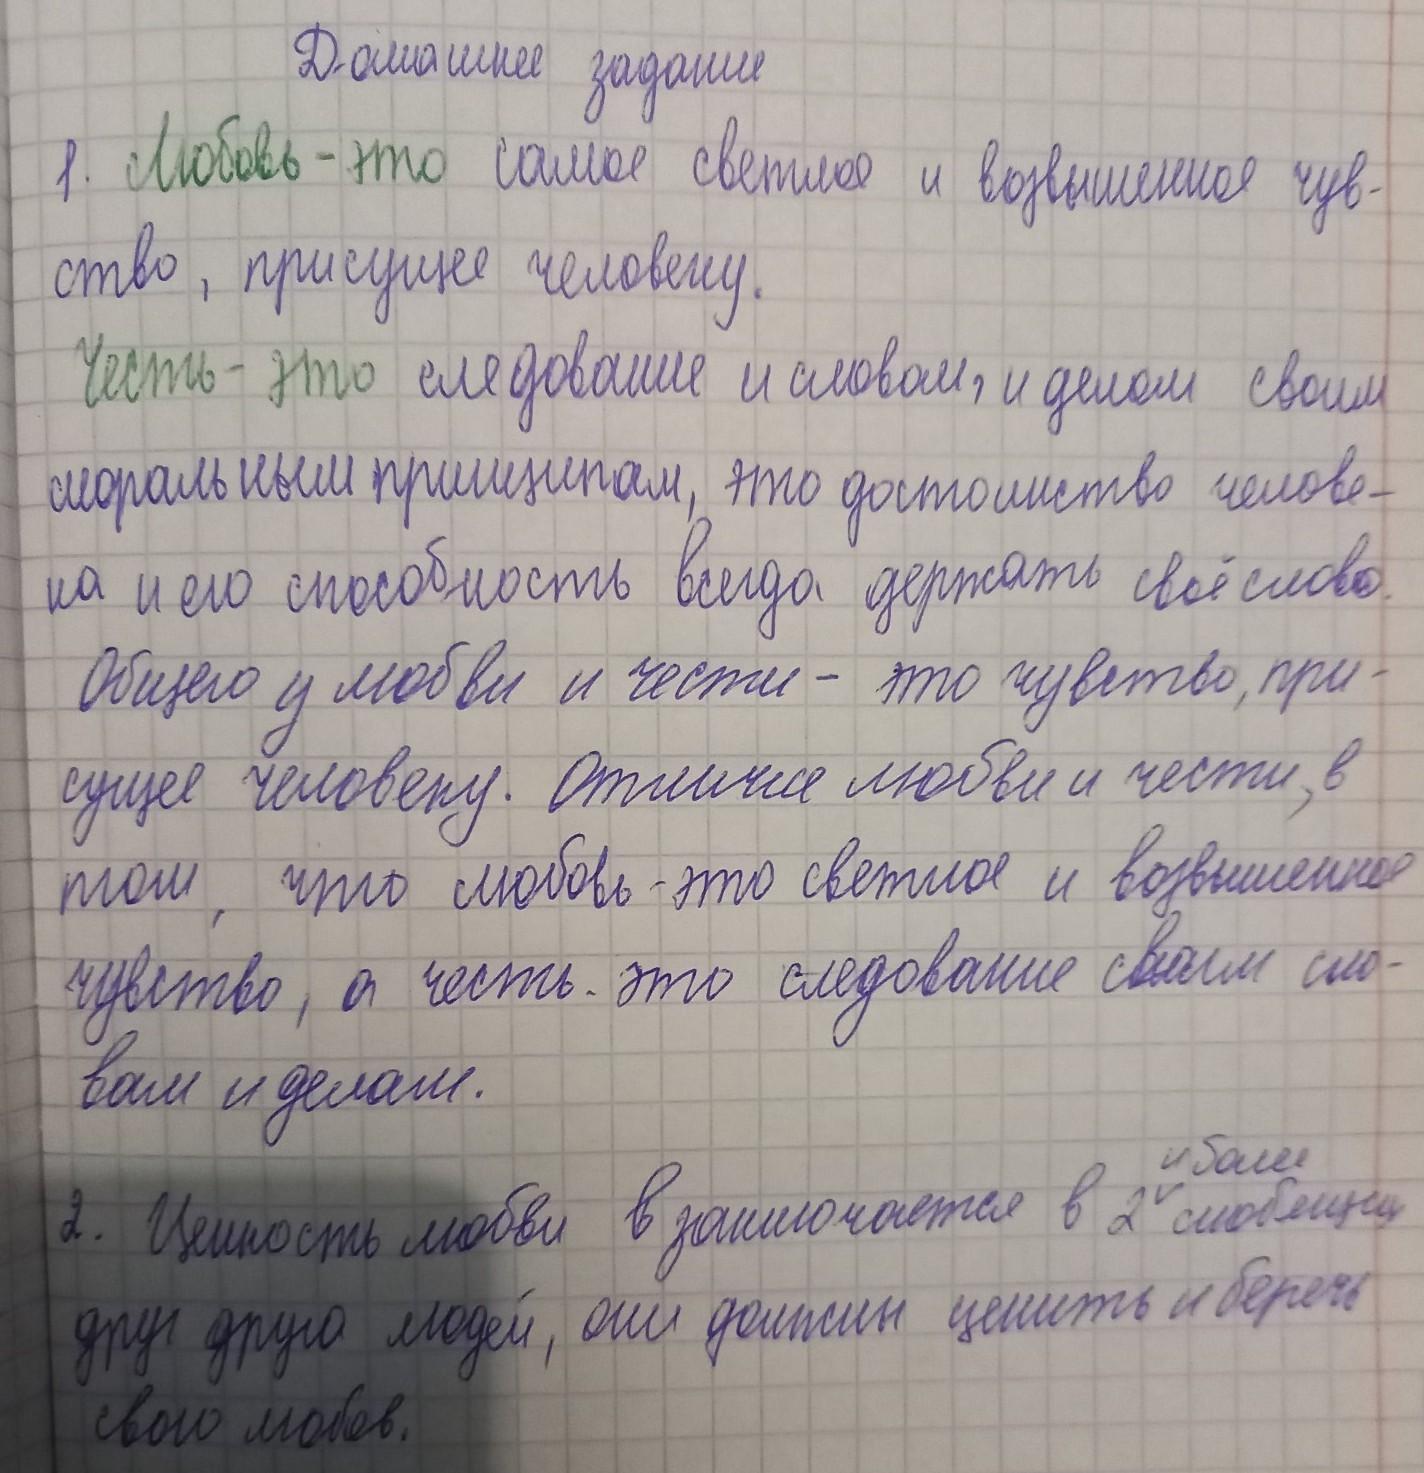 Домашнее задание
1. Любовь - это самое светлое и возвышенное чув-
ство, присущее человеку.
Честь - это следование и словом, и делом своим
моральным принципам, это достоинство челове-
ка и его способность всегда держать своё слово.
Общего у любви и чести - это чувство, при-
сущее человеку. Отличие любви и чести, в
том, что любовь - это светлое и возвышенное
чувство, а честь - это следование своим сло-
вам и делам.
и боле
2. Ценность любви в заключается в 2 ˅ любящих
друг друга людей, они должны ценить и беречь
свою любов.